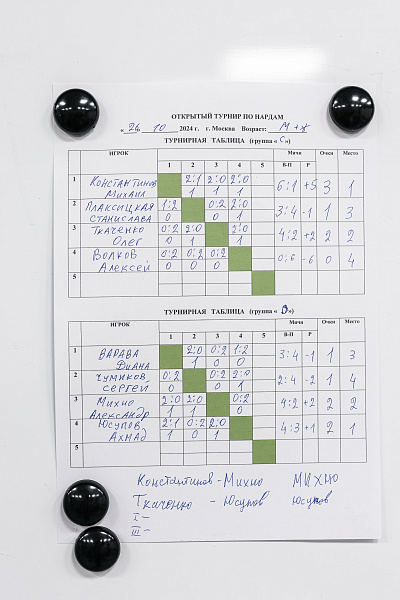 ОТКРЫТЫЙ ТУРНИР ПО НАРДАМ
« 26 » 10 2024 г. г. Москва Возраст: М+ж
ТУРНИРНАЯ ТАБЛИЦА (группа « С »)
ИГРОК 1 2 3 4 5 Матчи В-П Р Очки Место
1 Константинов Михаил 2:1 2:0 2:0 6:1 +5 3 1
1 1 1
2 Плаксицкая Станислава 1:2 0:2 2:0 3:4 -1 1 3
0 0 1
3 Ткаченко Олег 0:2 2:0 2:0 4:2 +2 2 2
0 1 1
4 Волков Алексей 0:2 0:2 0:2 0:6 -6 0 4
0 0 0
5
ТУРНИРНАЯ ТАБЛИЦА (группа « D »)
ИГРОК 1 2 3 4 5 Матчи В-П Р Очки Место
1 Варава Диана 2:0 0:2 1:2 3:4 -1 1 3
1 0 0
2 Чумиков Сергей 0:2 0:2 2:0 2:4 -2 1 4
0 0 1
3 Михно Александр 2:0 2:0 0:2 4:2 +2 2 2
1 1 0
4 Юсупов Ахмад 2:1 0:2 2:0 4:3 +1 2 1
1 0 1
5
Константинов - Михно МИХНО
Ткаченко - Юсупов Юсупов
I -
III -